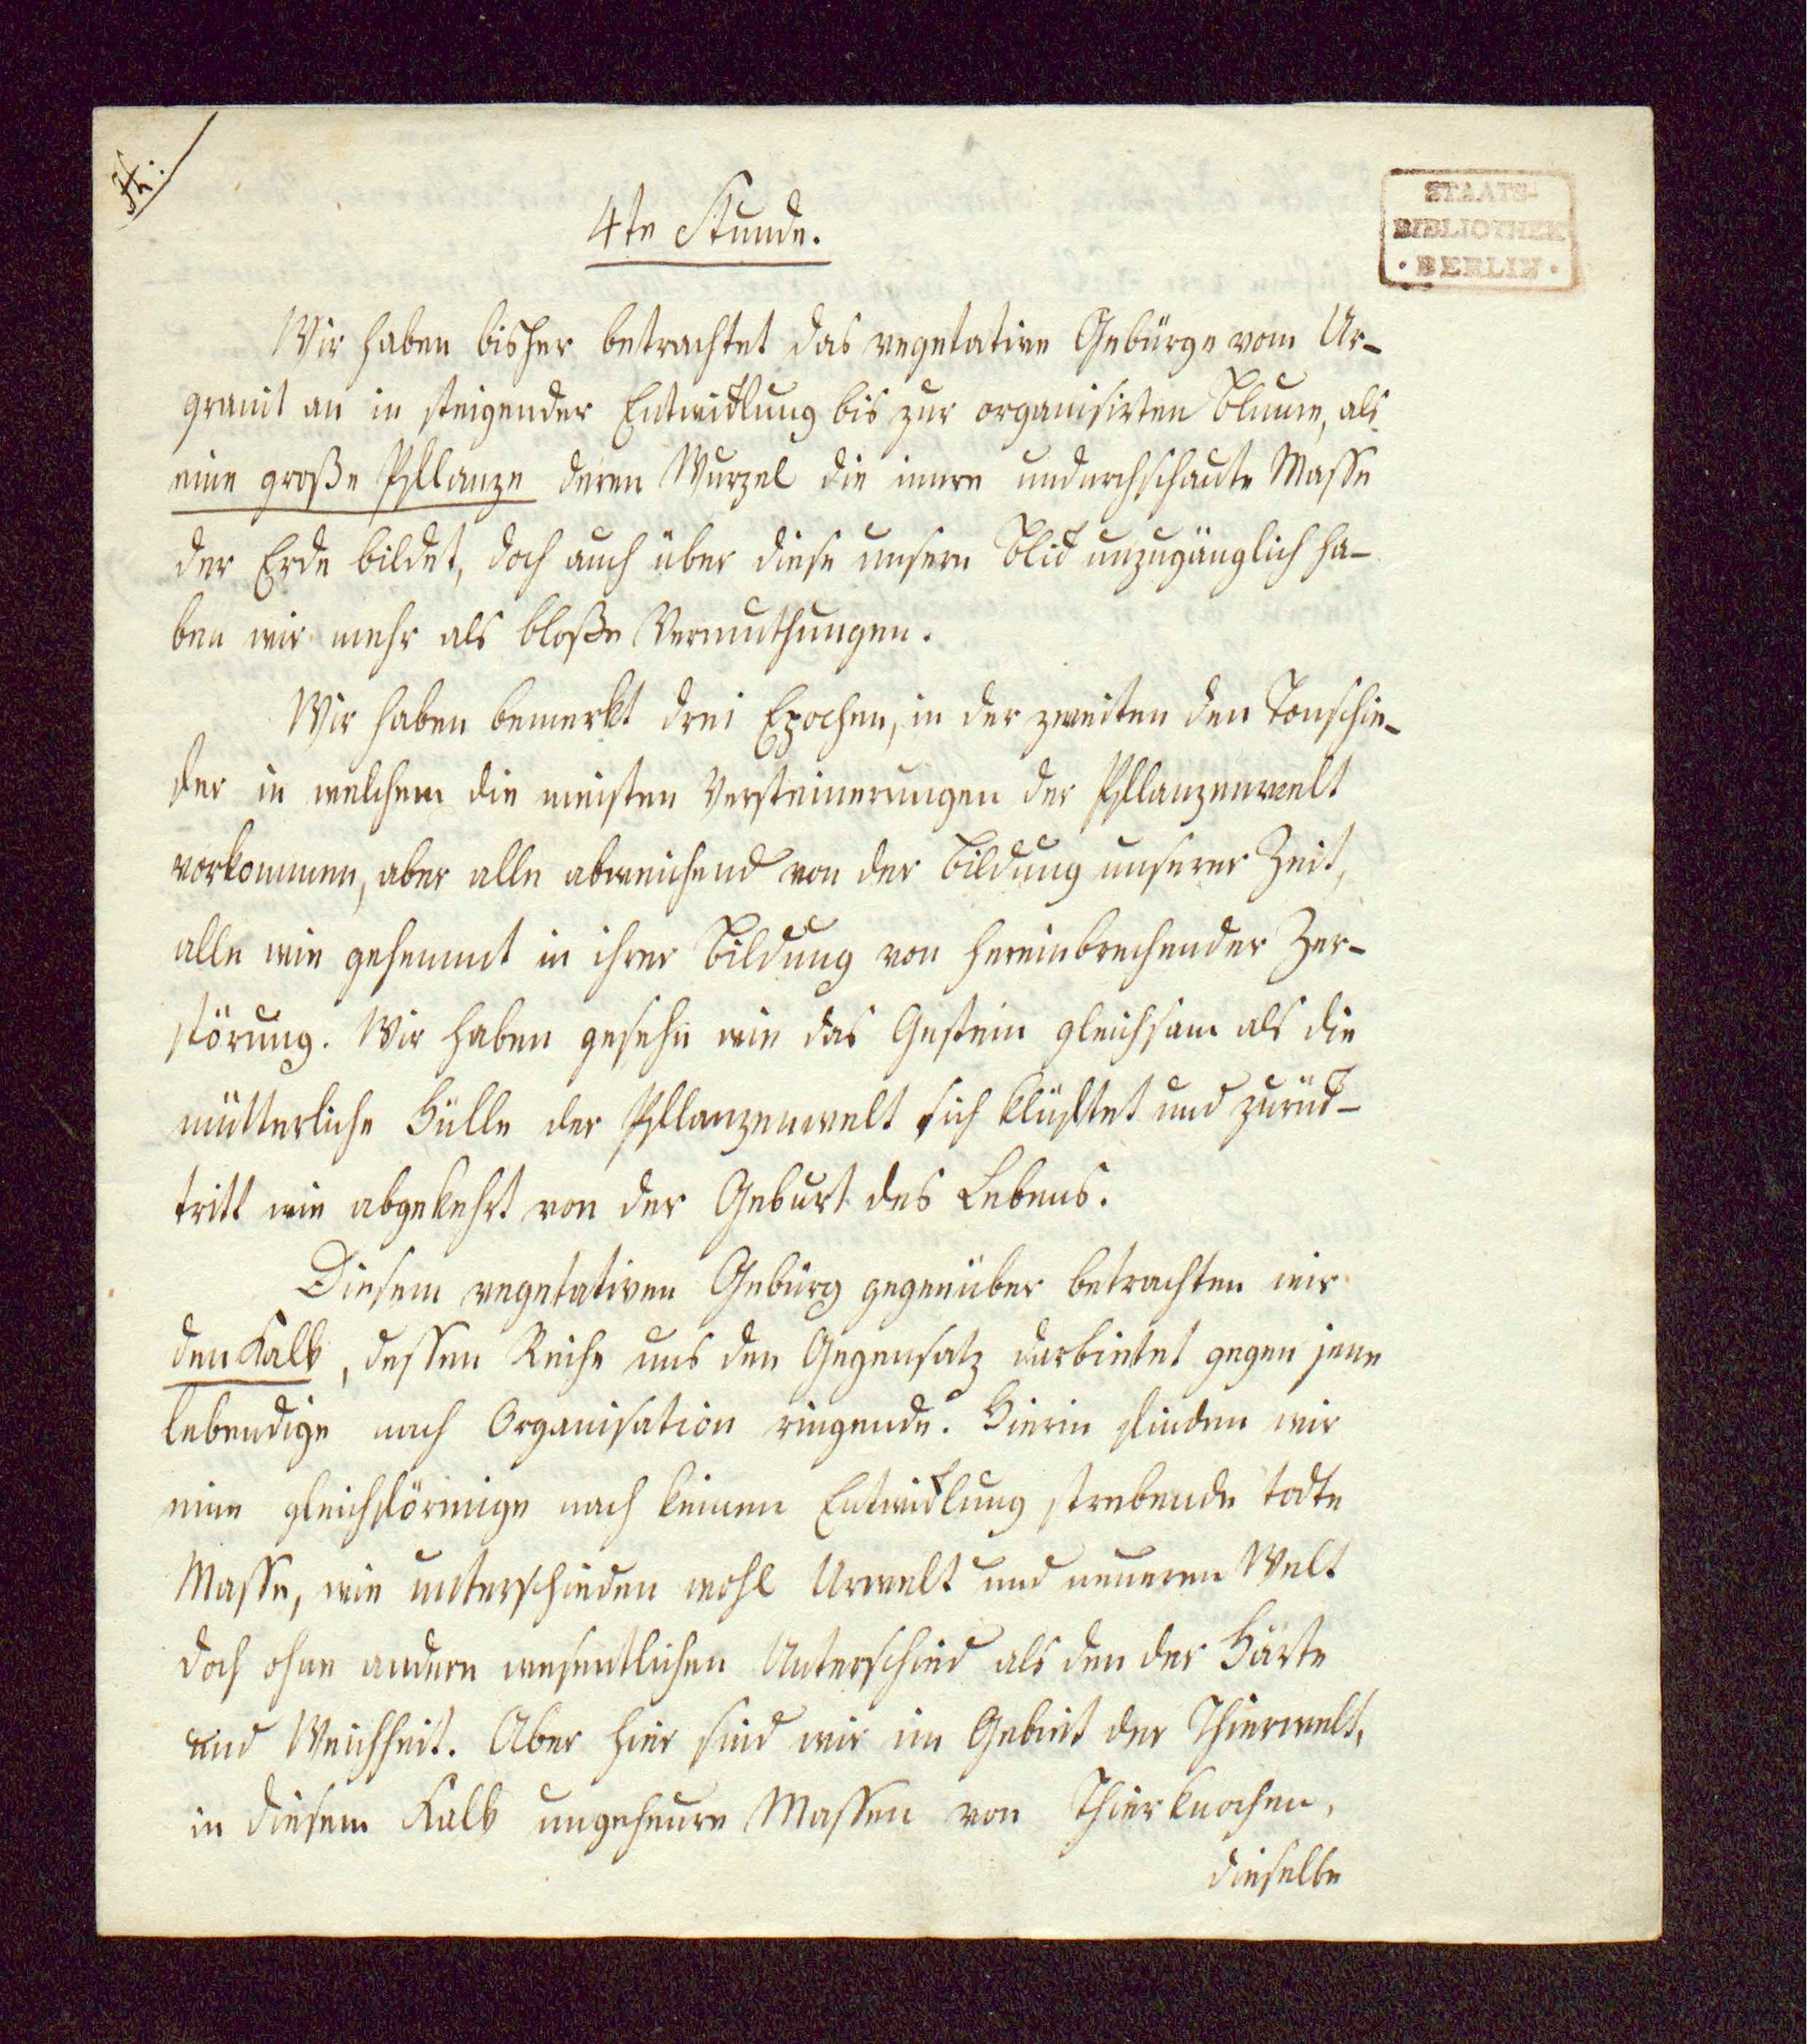 4te Stunde.
STAATS-
BIBLIOTHEK
· BERLIN ·
Wir haben bisher betrachtet das vegetative Gebürge vom Ur-
granit an in steigender Entwicklung bis zur organisirten Blume, als
eine große Pflanze deren Wurzel die innre undurchschaute Masse
der Erde bildet, doch auch über diese unserm Blick unzugänglich ha-
ben wir mehr als bloße Vermuthungen.
Wir haben bemerkt drei Epochen, in der zweiten den Tonschie-
der in welchem die meisten Versteinerungen der Pflanzenwelt
vorkommen, aber alle abweichend von der Bildung unserer Zeit,
alle wie gehemmt in ihrer Bildung von hereinbrechender Zer-
störung. Wir haben gesehn wie das Gestein gleichsam als die
mütterliche Hülle der Pflanzenwelt sich klüftet und zurück-
tritt wie abgekehrt von der Geburt des Lebens.
Diesem vegetativen Gebürg gegenüber betrachten wir
den Kalk, dessen Reihe uns den Gegensatz darbietet gegen jene
lebendige nach Organisation ringende. Hierin finden wir
eine gleichförmige nach keiner Entwicklung strebende todte
Masse, wie unterschieden wohl Urwelt und neueren Welt
doch ohne andern wesentlichen Unterschied als den der Härte
und Weichheit. Aber hier sind wir im Gebiet der Thierwelt,
in diesem Kalk ungeheure Massen von Thierknochen,
dieselbe